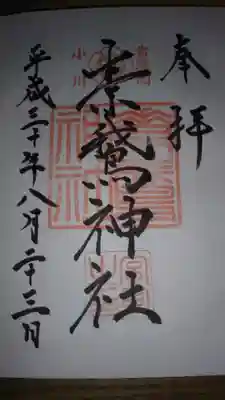 奉拝
小川
素鵞神社
平成三十年八月二十三日